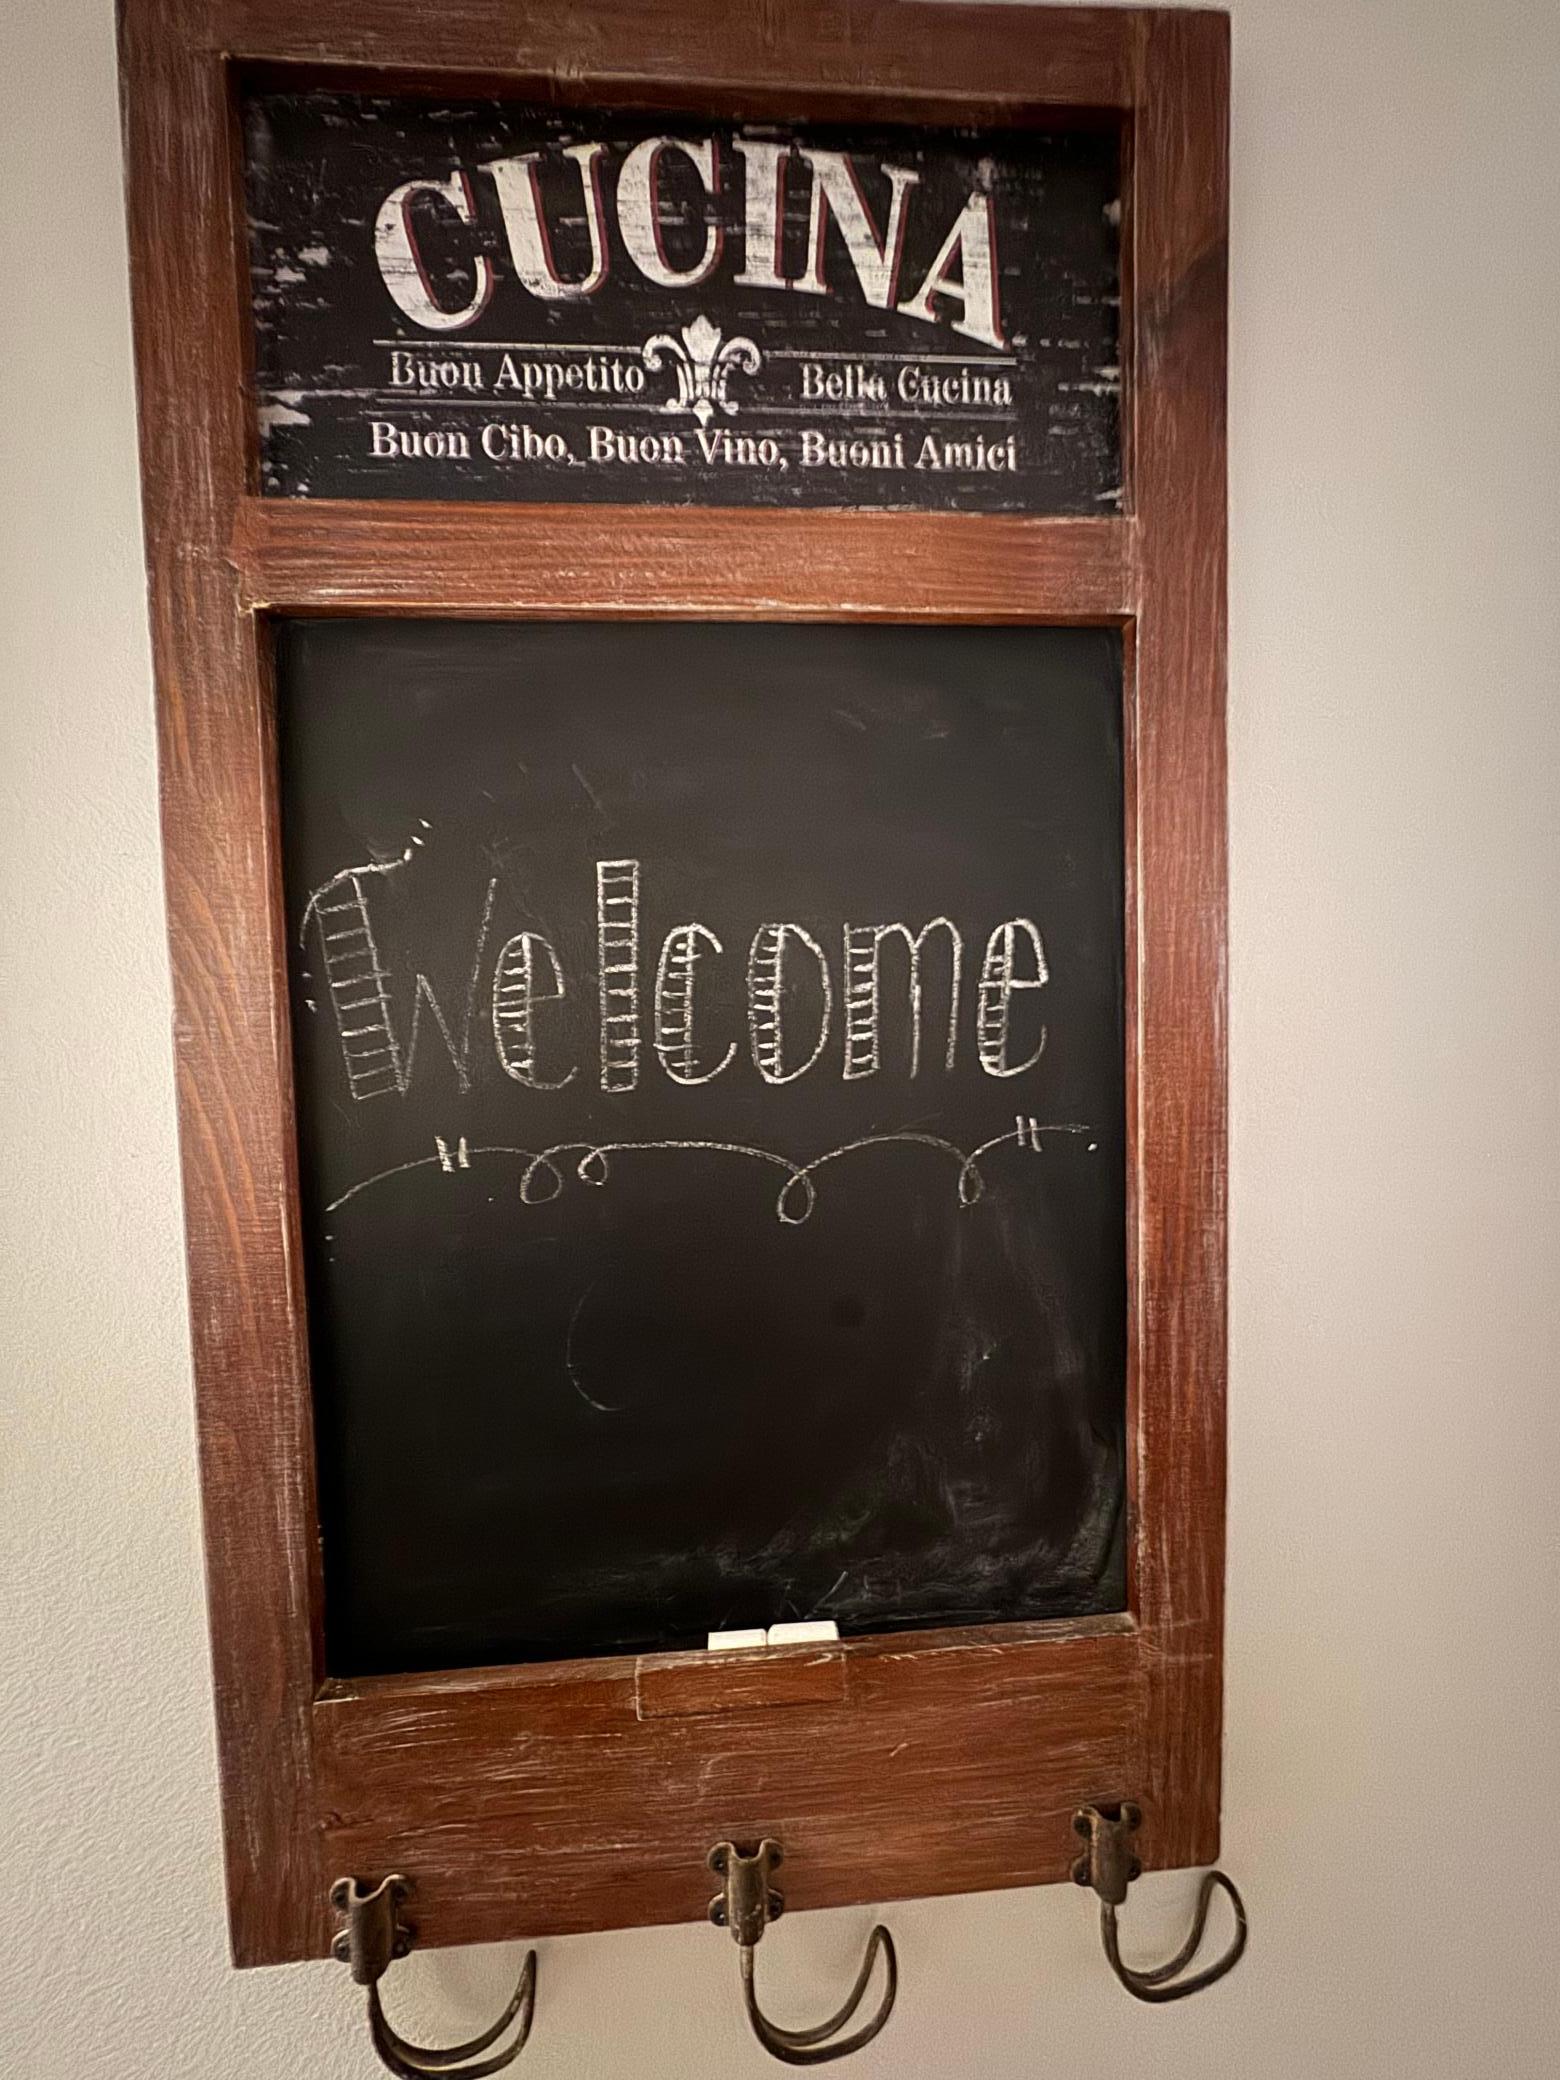 CUCINA
Buon Appetito Bella Cucina
Buon Cibo, Buon Vino, Buoni Amici
Welcome